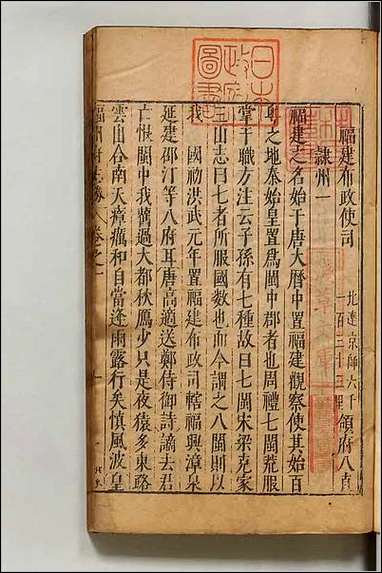 福建布政使司 地達京師六千一百三十三里 領府八直
隸州一
福建之名始于唐大曆中置福建觀察使其始百
粵之地秦始皇置為閩中郡者也周禮七閩荒服
掌于職方注云子孫有七種故曰七閩宋梁克家
三山志曰七者所服國數也而今謂之八閩則以
我 國初洪武元年置福建布政司轄福興漳泉
延建邵汀等八府耳唐高適送鄭侍御詩謫去君
亡恨閩中我舊過大都秋鴈少只是夜猿多東路
雲山合南天瘴癘和自當逢雨露行矣慎風波皇
卷之一
日本
政府
圖書